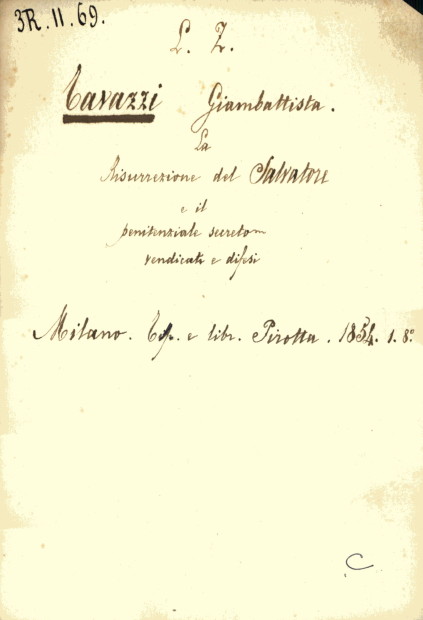 3R. II. 69.
L. Z.
Tavazzi Giambattista.
La
Risurrezione del Salvatore
e il
penitenziale secreto
vendicati e difesi
Milano. Tip. e libr. Pirotta. 1854. 1. 8º
C